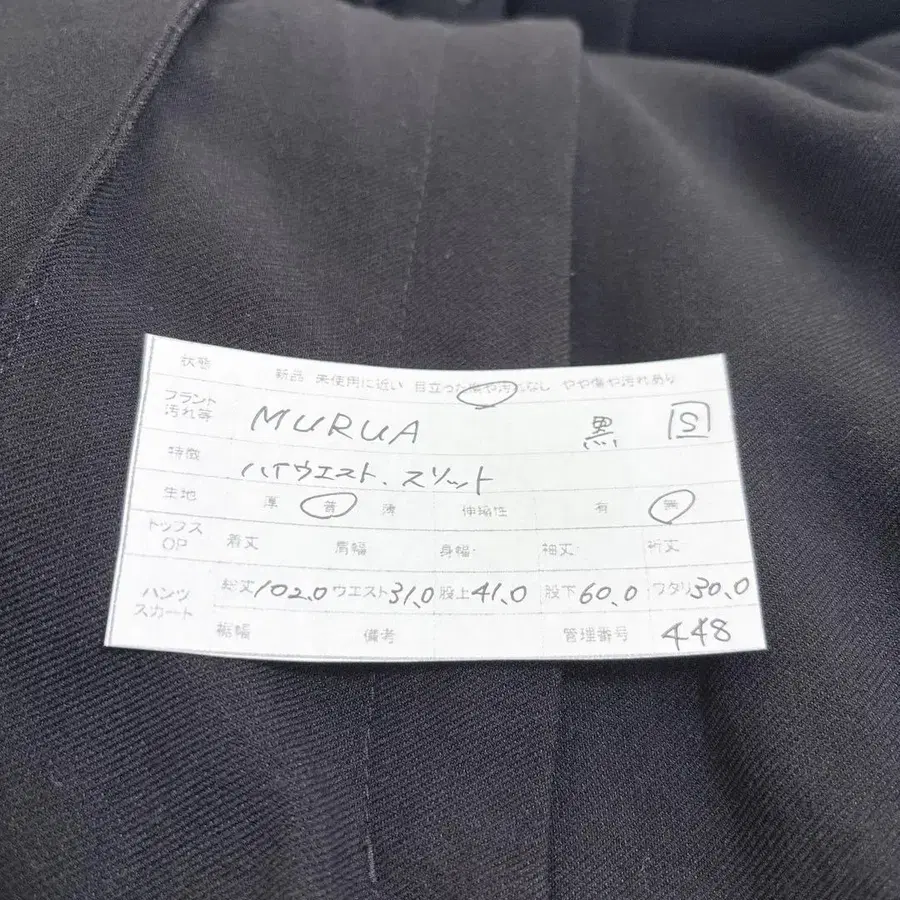 状態 新品 未使用に近い 目立った傷や汚れなし やや傷や汚れあり
ブランド 汚れ等 MURUA 黒 S
特徴 ハイウエスト、スリット
生地 厚 普 薄 伸縮性 有 無
トップス OP 着丈 肩幅 身幅 袖丈 裄丈
パンツ スカート 総丈102.0 ウエスト31.0 股上41.0 股下60.0 ワタリ30.0
裾幅 備考 管理番号 448